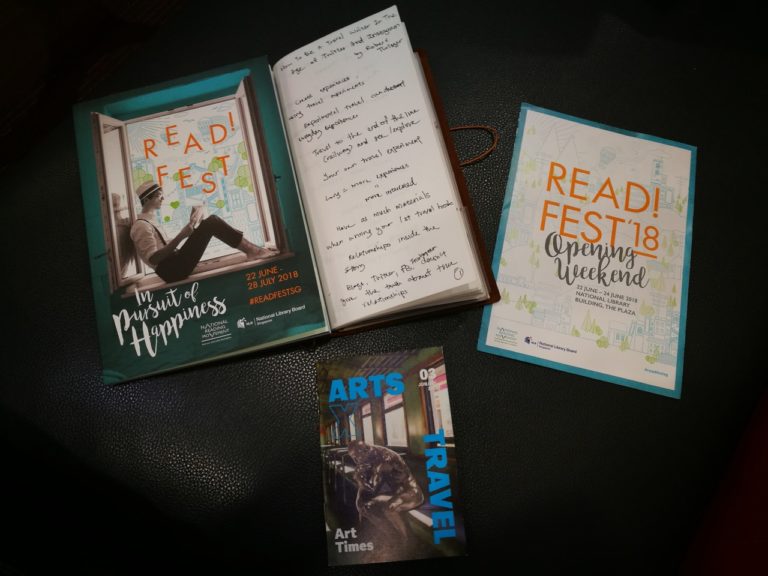 READ!
FEST
In
Pursuit of
Happiness
22 JUNE -
28 JULY 2018
#READFESTSG
NATIONAL
READING
MOVEMENT
National Library Board
Singapore
How to be a Travel Writer In The
Age of Twitter and Instagram
by Robert
Create experiences
travel experiments
experimental travel
everyday experience
Travel to the end of the line
(railway) and see/explore
Your own travel experiment
more experiences
more
Have as much materials
when writing your 1st travel book
Relationships inside the
story
Blogs, Twitter, FB, Instagram doesn't
give the truth about true
relationships
1
READ!
FEST '18
Opening
Weekend
22 JUNE - 24 JUNE 2018
NATIONAL LIBRARY
BUILDING, THE PLAZA
NATIONAL
READING
MOVEMENT
National Library Board
Singapore
#readfestsg
ARTS
X
TRAVEL
03
Art
Times